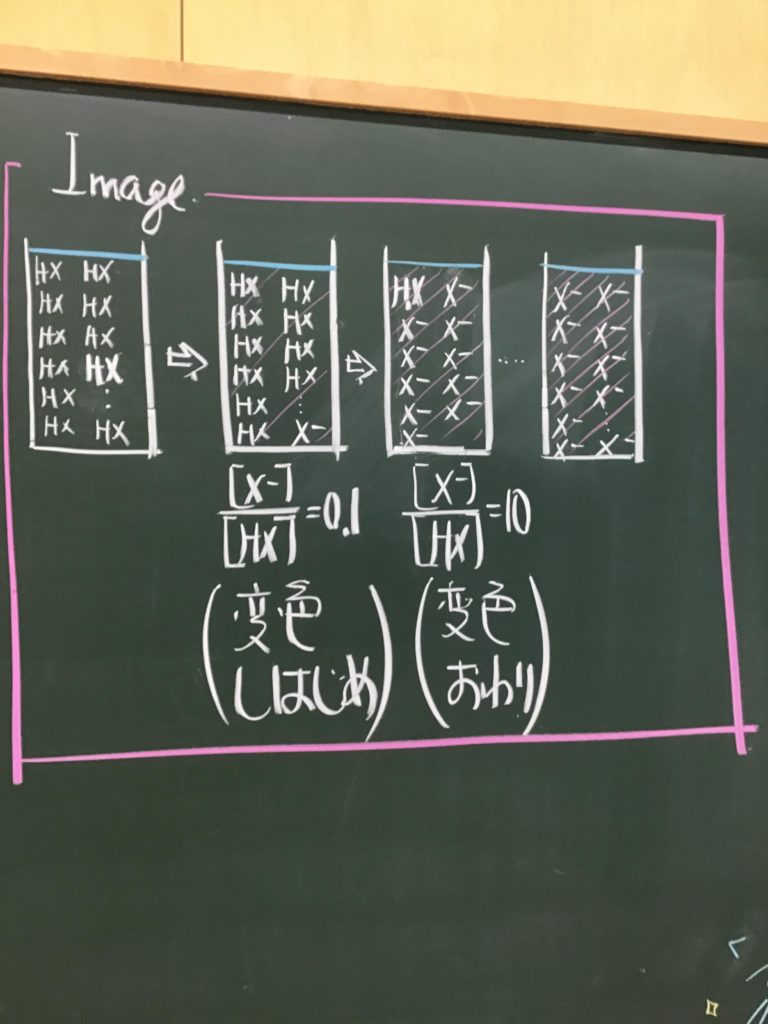 Image.
HX HX
HX HX
HX HX
HX HX
HX :
HX HX
⇨
HX HX
HX HX
HX HX
HX HX
HX :
HX X-
⇨
HX X-
X- X-
X- X-
X- X-
X- X-
X-
....
X- X-
X- X-
X- X-
X- X-
X- :
X- X-
[X-]/[HX] = 0.1
(変色
しはじめ)
[X-]/[HX] = 10
(変色
おわり)